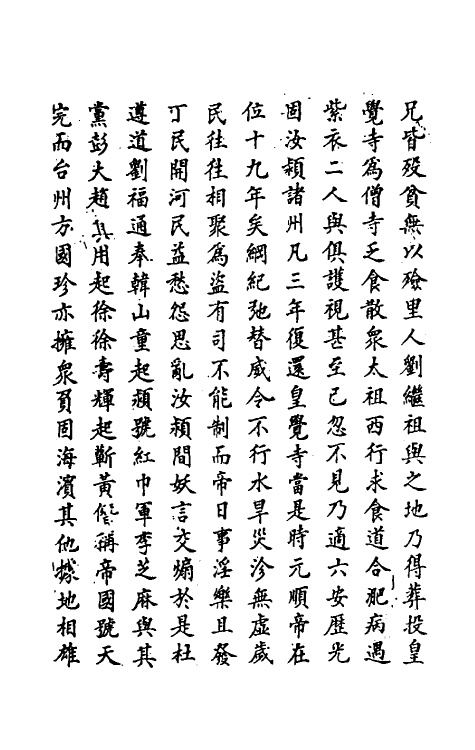 兄皆殁貧無以殮里人劉繼祖與之地乃得葬投皇
覺寺爲僧寺乏食散衆太祖西行求食道合肥病遇
紫衣二人與俱護視甚至已忽不見乃適六安歷光
固汝穎諸州凡三年復還皇覺寺當是時元順帝在
位十九年矣綱紀弛替威令不行水旱災沴無虛歲
民往往相聚爲盜有司不能制而帝日事淫樂且發
丁民開河民益愁怨思亂汝穎間妖言交煽於是杜
遵道劉福通奉韓山童起潁號紅巾軍李芝麻與其
黨彭大趙其用起徐徐壽輝起蘄黃僭稱帝國號天
完而台州方國珍亦擁衆負固海濱其他據地相雄